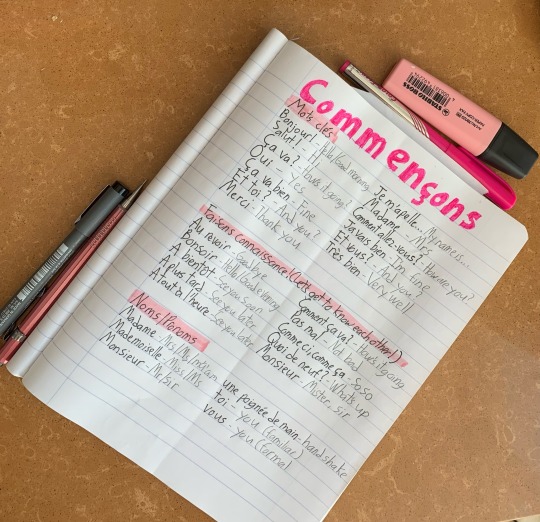 Commençons
Mots clés
Bonjour! - Hello/Good morning
Salut! - Hi
Ça va? - How's it going?
Oui - Yes
Ça va bien - Fine
Et toi? - And you?
Merci - Thank you
Je m'apelle... - My name is...
Madame - Mrs
Comment allez-vous? - How are you?
Je vais bien - I'm fine
Et vous? - And you
Très bien - Very well
Faisons connaissance! (Let's get to know each other!)
Au revoir - Goodbye
Bonsoir - Hello/Good evening
À bientôt - See you soon
À plus tard - See you later
À Tout à l'heure - See you later
Comment ça va? - How's it going
Pas mal - Not bad
Comme ci, comme ça - So so
Quoi de neuf? - What's up
Monsieur - Mister, sir
Noms/Pronoms
Madame - Ms/Mrs/ma'am
Mademoiselle - Miss/Ms
Monsieur - Mr/Sir
une poignée de main - handshake
toi - you (familiar)
vous - you (formal
STABILO BOSS